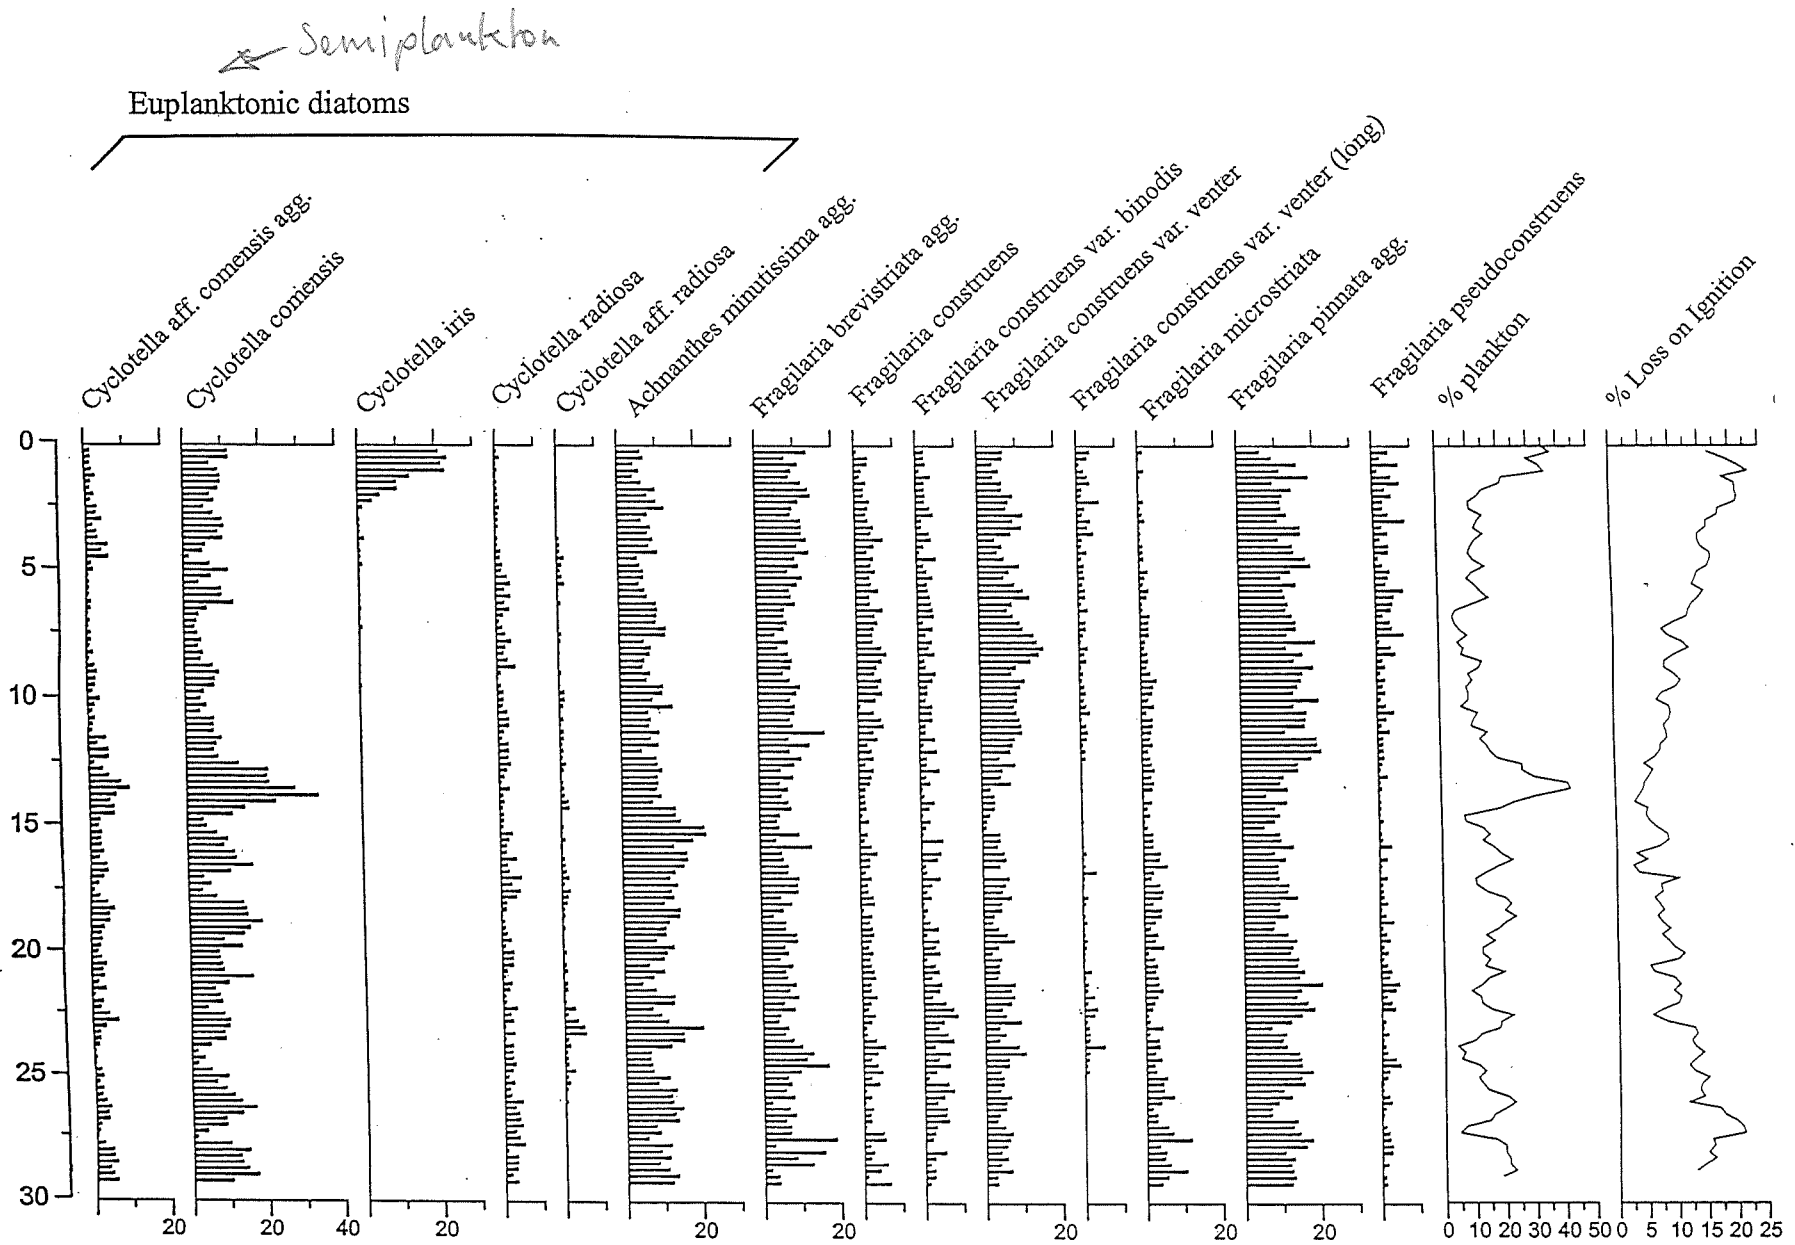 Semiplankton
Euplanktonic diatoms
Cyclotella aff. comensis agg.
Cyclotella comensis
Cyclotella iris
Cyclotella radiosa
Cyclotella aff. radiosa
Achnanthes minutissima agg.
Fragilaria brevistriata agg.
Fragilaria construens
Fragilaria construens var. binodis
Fragilaria construens var. venter
Fragilaria construens var. venter (long)
Fragilaria microstriata
Fragilaria pinnata agg.
Fragilaria pseudoconstruens
% plankton
% Loss on Ignition
0
5
10
15
20
25
30
20 20 40 20 20 20 20 20 20 0 10 20 30 40 50 0 5 10 15 20 25